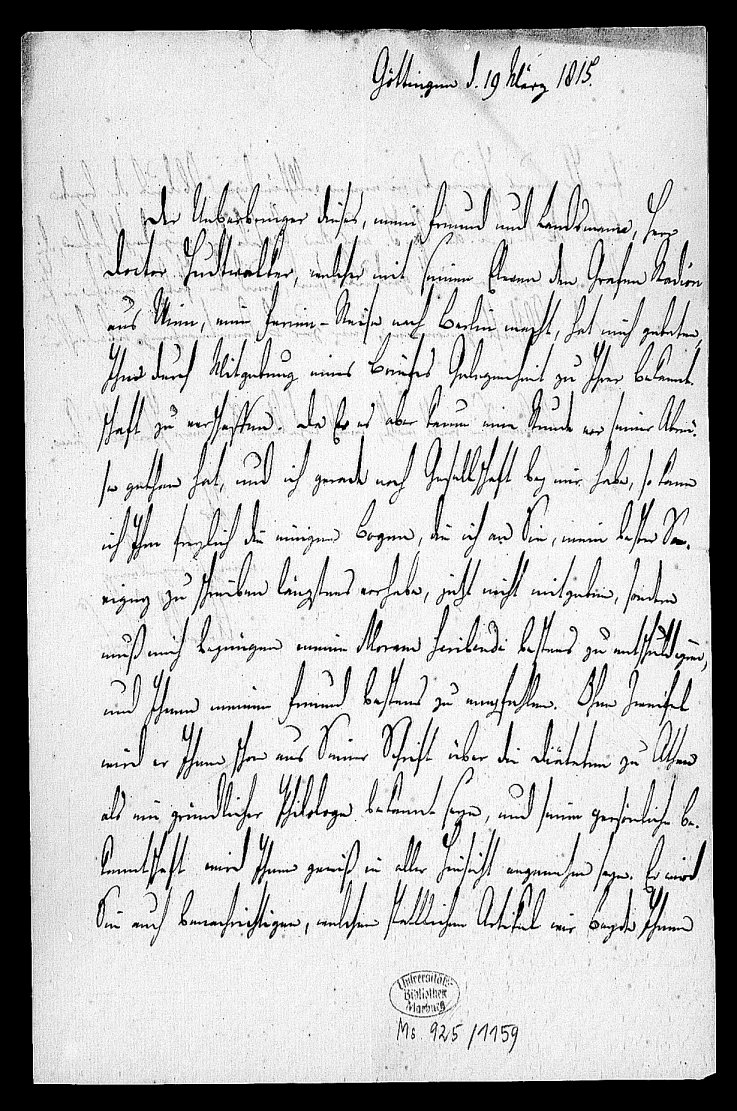 Göttingen d. 19 März 1815.
Der Ueberbringer dieses, mein Freund und Landsmann, Herr
Doctor Hudtwalker, welcher mit seinem Eleven den Grafen Stadion
aus Wien, eine Ferien-Reise nach Berlin macht, hat mich gebeten,
Ihm durch Mitgebung eines Briefes Gelegenheit zu Ihrer Bekannt-
schaft zu verschaffen. Da Er es aber kaum eine Stunde vor seiner Abrei-
se gethan hat, und ich gerade noch Gesellschaft bey mir habe, so kann
ich Ihm freylich die einigen Bogen, die ich an Sie, mein bester Sa-
vigny zu schreiben längstens vorhabe, jetzt nicht mitgeben, sondern
muß mich begnügen meine Moram scribendi bestens zu entschuldigen,
und Ihnen meinen Freund bestens zu empfehlen. Ohne Zweifel
wird er Ihnen schon aus Seiner Schrift über die Diäteten zu Athen
als ein gründlicher Philologe bekannt seyn, und seine persönliche Be-
kanntschaft wird Ihnen gewiß in aller Hinsicht angenehm seyn. Er wird
Sie auch benachrichtigen, welchen stattlichen Artikel wir beyde Ihnen
Universitäts-
Bibliothek
Marburg
Ms. 925/1159